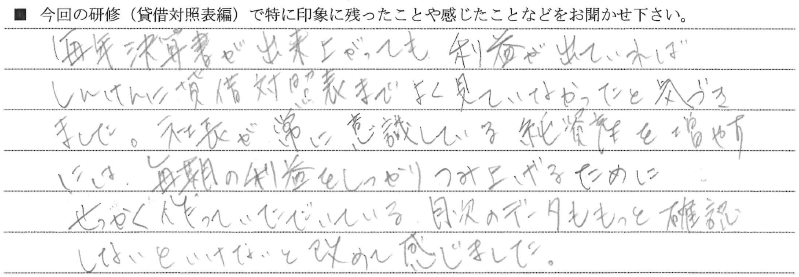 ■ 今回の研修（貸借対照表編）で特に印象に残ったことや感じたことなどをお聞かせ下さい。
毎年決算書が出来上がっても、利益が出ていれば
しんけんに貸借対照表までよく見ていなかったと気づき
ました。社長が常に意識している純資産を増やす
には、毎期の利益をしっかりつみ上げるために
せっかく作っていただいている月次のデータももっと確認
しないといけないと改めて感じました。